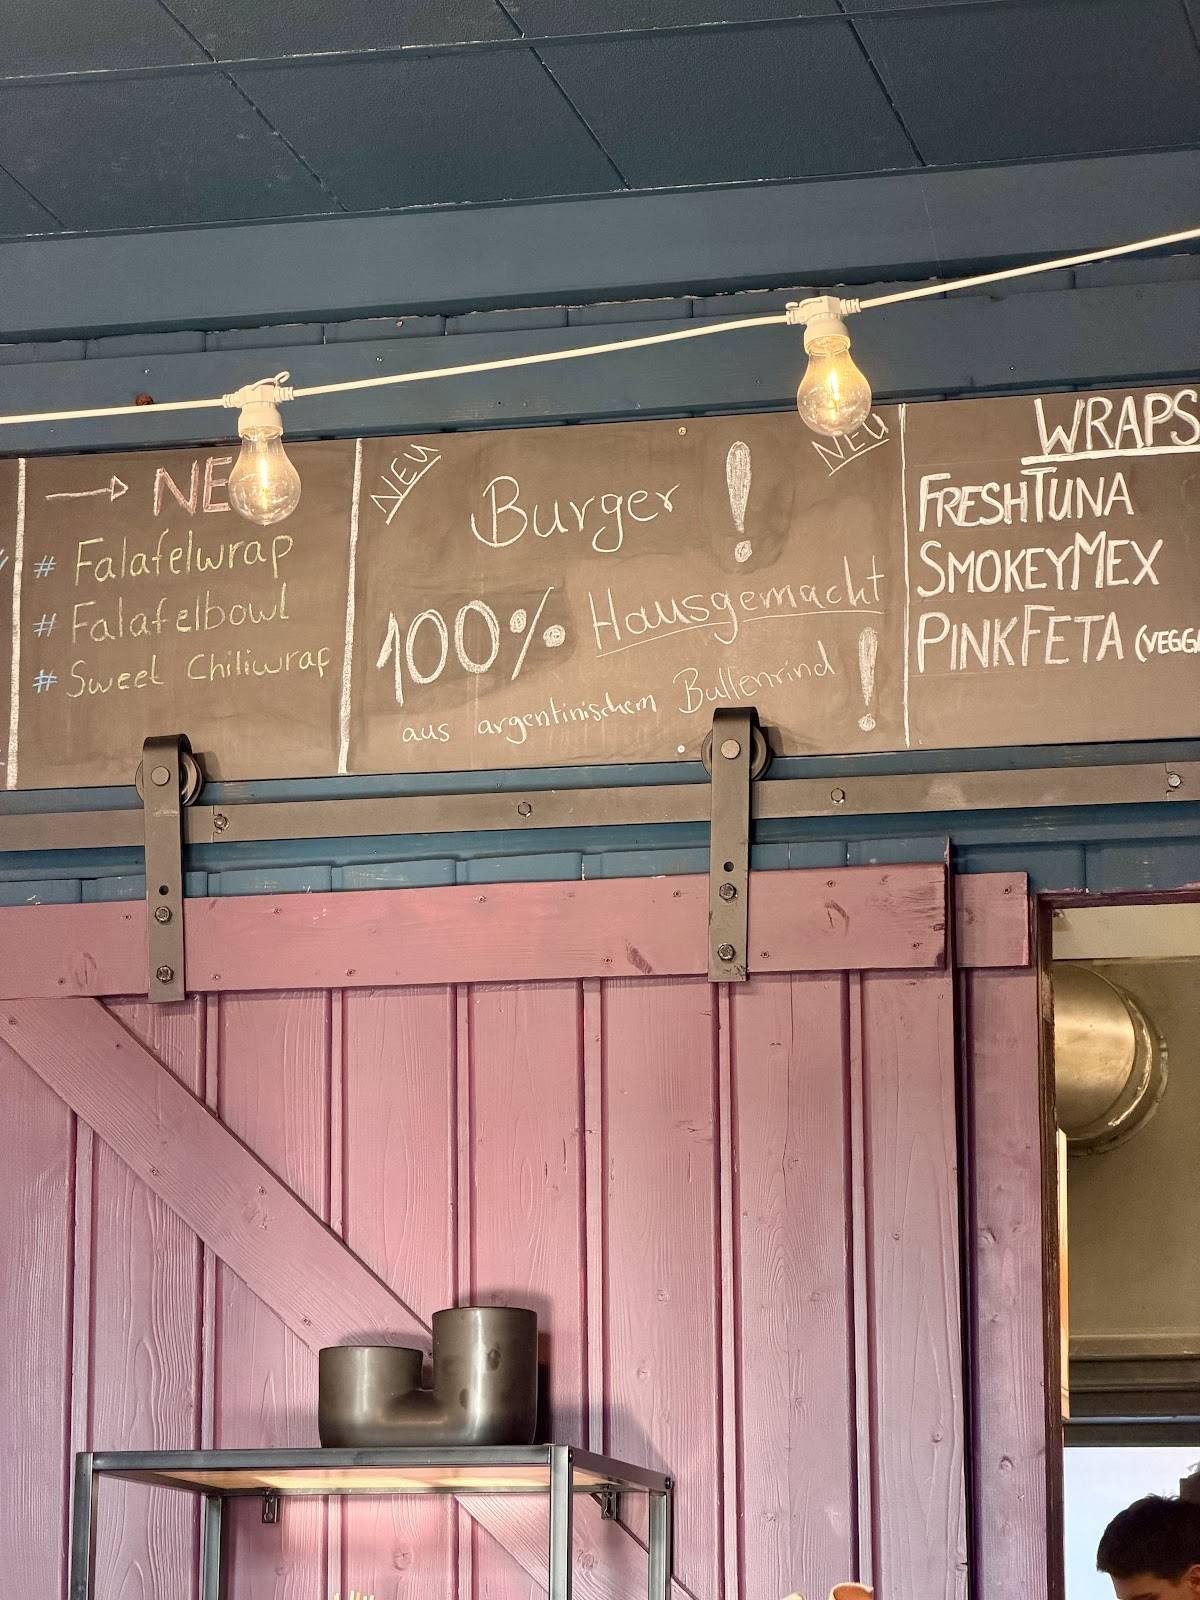 → NE
# Falafelwrap
# Falafelbowl
# Sweet Chiliwrap
NEU
NEU
Burger !
100% Hausgemacht
aus argentinischem Bullenrind !
WRAPS
FRESHTUNA
SMOKEYMEX
PINKFETA (VEGG